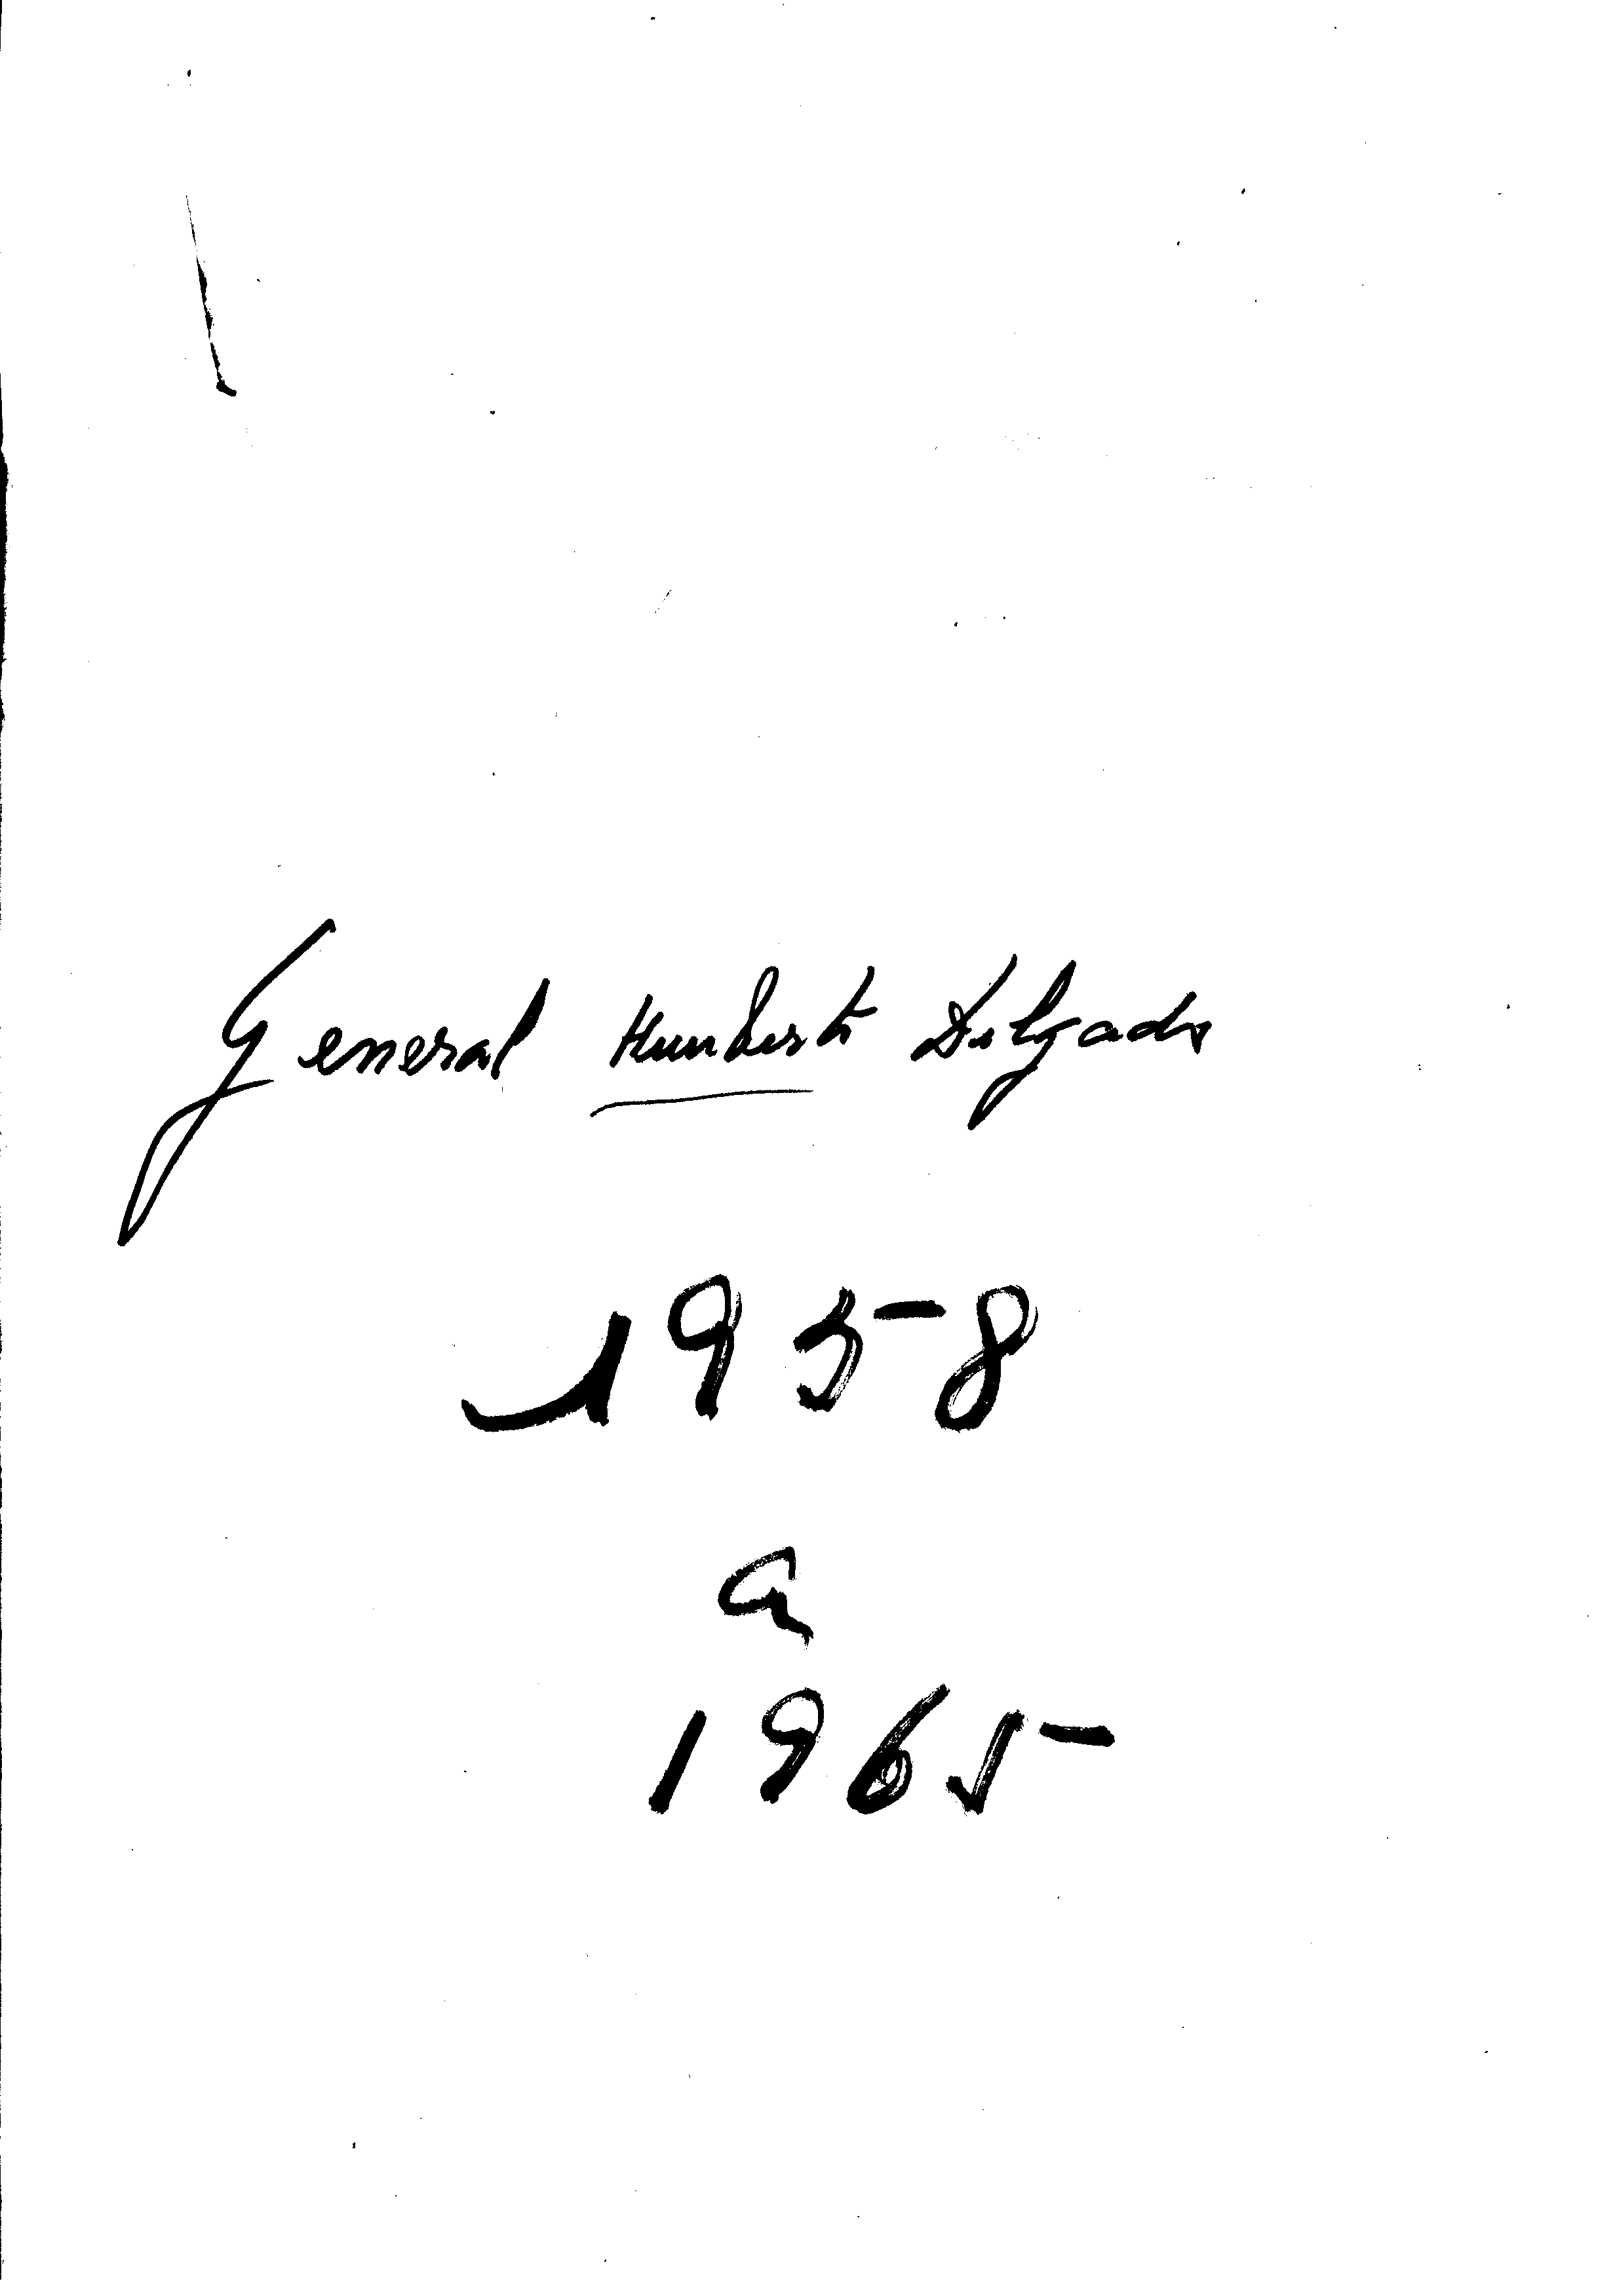 General Humberto Delgado
1958
a
1965